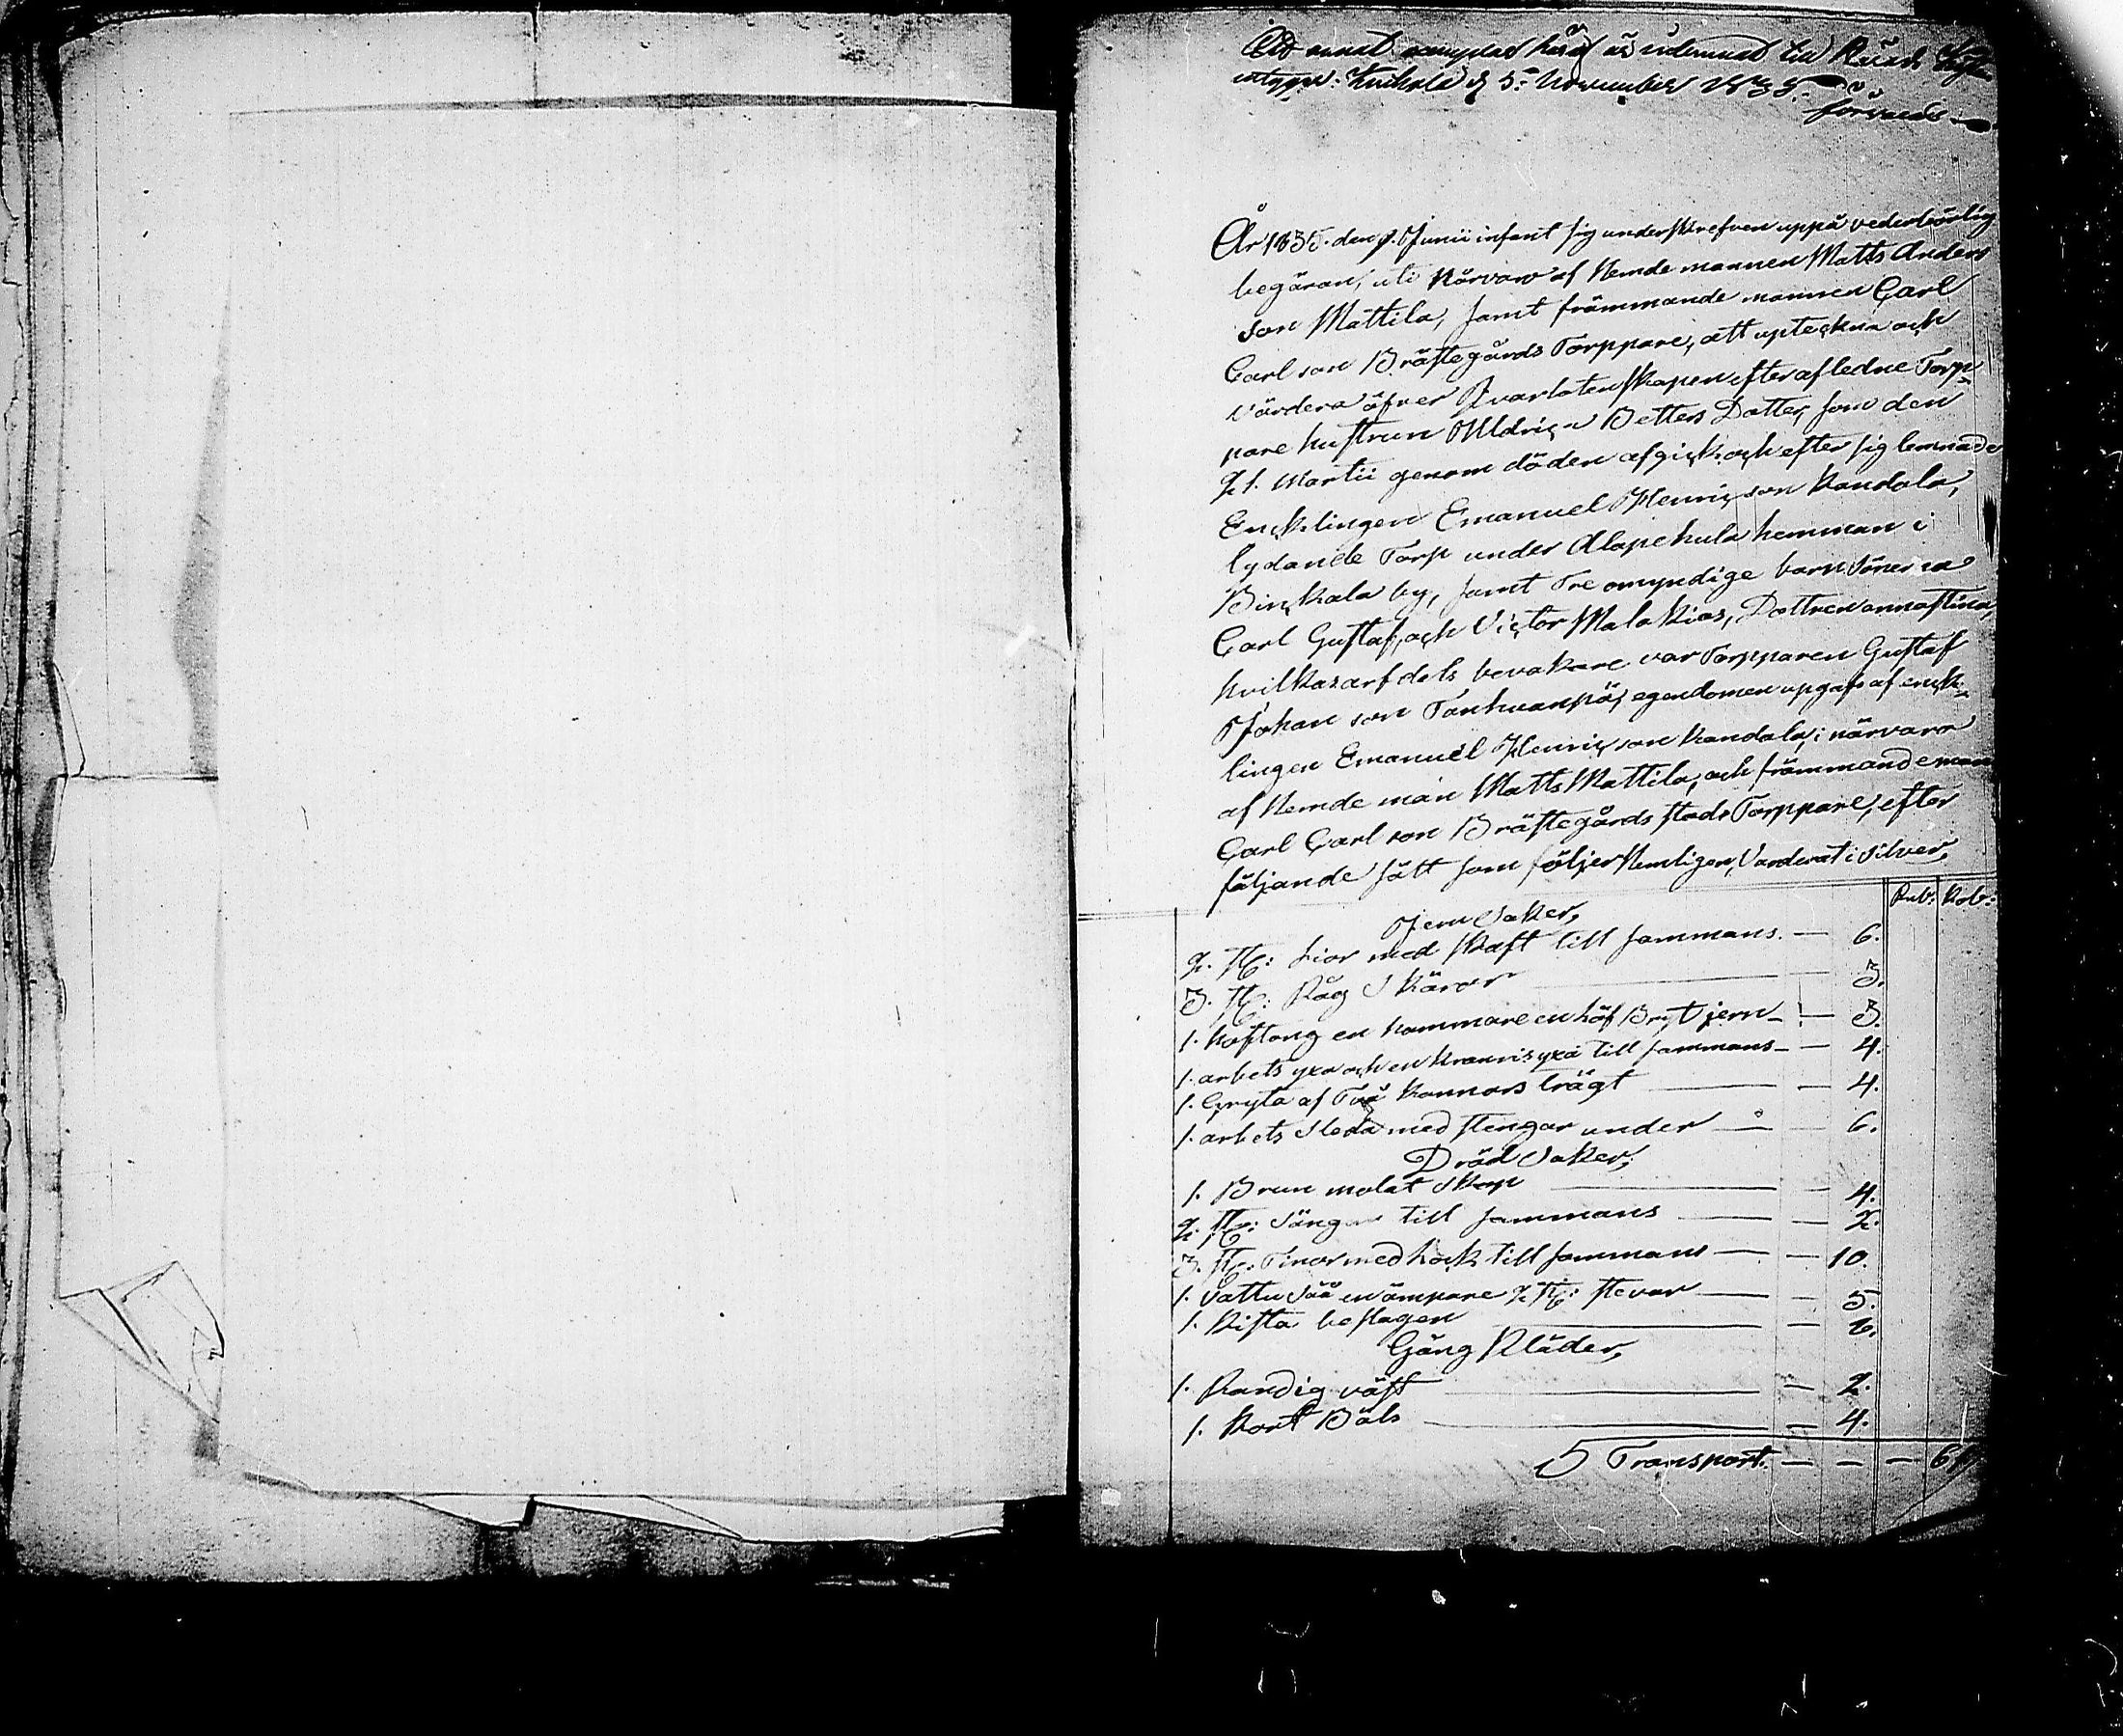 Ett annat exemplar häraf är inlemnat till
intygar. Kuckola d 5te November 1835.
År 1835. den 9. Junii infant sig underskrefven uppå vederbörlig
begäran, uti Närvaro af Nemde mannen Matts Anders
son Mattila, samt främmande mannen Carl
Carl son Bräste gårds Torppare, att upteckna och
värdera öfver Qvarlotenskapen efter afledne Torp¬
pare hustrun Uldrica Betters Dotter, som den
21. Martii genom döden afgick och efter sig lemnade
Encklingen Emanuel Henric son Kandola,
lydande Torp under Alapehula hemman i
Binckala by, samt Tre omyndige barn Sönerna
Carl Gustaf, och Victor Malakias, Dottren annastina,
hvilkas arfdels bevakare var Torpparen Gustaf
Johan son Tanhuanpä, egendomen upgafs af enck¬
lingen Emanuel Henric son Kandola, i närvaro
af Nemde man Matts Mattila, och främmande man
Carl Carl son Bräste gårds stads Torppare, efter
följande sätt som följer Nemligen, Varderat i Silver,
Rub: Kob:
Jern Saker,
2. st: Lior med skaft till sammans. — 6.
3. st: Råg Skäror — 3.
1. Hoftong en hammare en höf Bryt jern — 3.
1. arbets yxa och en yxa till sammans — 4.
1. Gryta af Två Kannors trägt — 4.
1. arbets Sleda med stengar under — 6.
Träd Saker,
1. Brun malat Skop — 4.
2. st: Sängar till sammans — 2.
3. st: Tinor med Lock till sammans — 10.
1. Vattu Såå en ämpare 2 st: stevar — 5.
1. Kista beslagen — 6.
Gång Kläder,
1. Randig väst — 2.
1. Kort Bäls — 4.
Transport. — — —